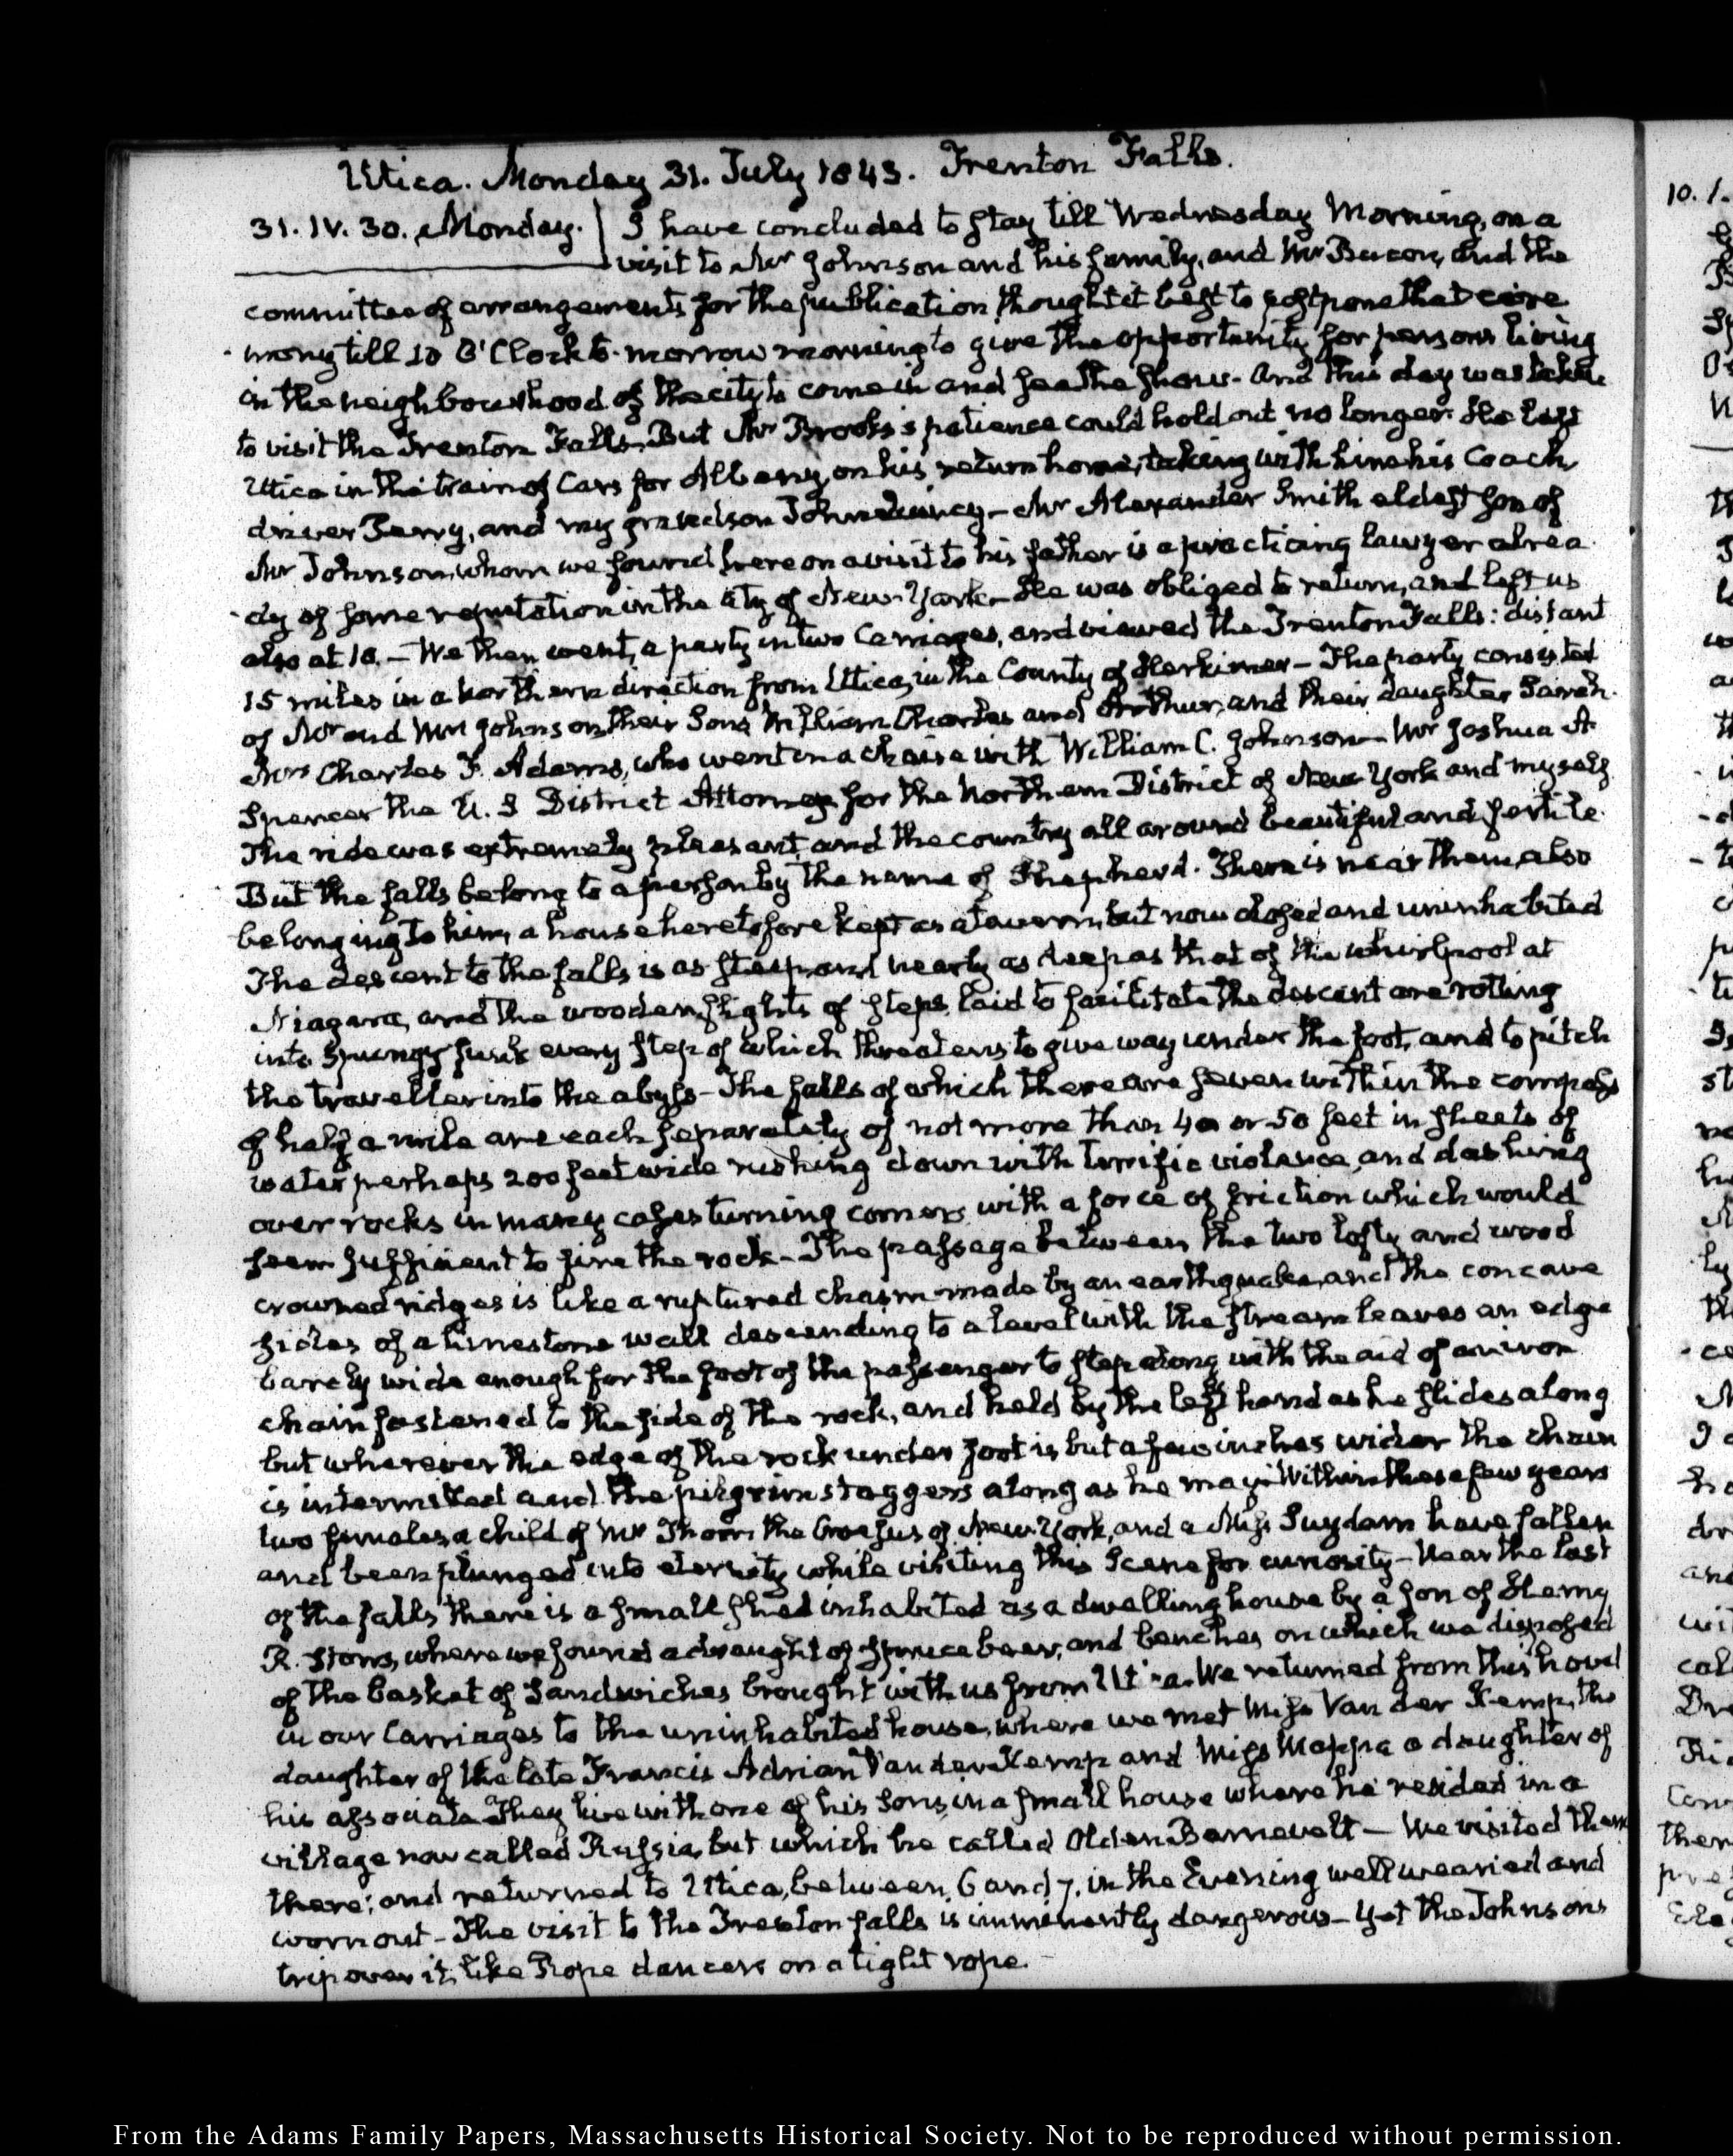 Utica. Monday 31. July 1843. Trenton Falls.
31. IV. 30. Monday. I have concluded to stay till Wednesday Morning, on a
visit to Mr Johnson and his family, and Mr Bacon, and the
committee of arrangements for the publication thought it best to postpone that cere
-mony till 10 O'Clock to-morrow morning to give the opportunity for persons living
in the neighbourhood of the city to come in and see the show. And this day was taken
to visit the Trenton Falls. But Mr Brooks's patience could hold out no longer. He left
Utica in the train of Cars for Albany, on his return home, taking with him his Coach
driver Jerry, and my grandson John Quincy - Mr Alexander Smith eldest son of
Mr Johnson whom we found here on a visit to his father is a practicing lawyer alrea
-dy of some reputation in the city of New-York - He was obliged to return, and left us
also at 10. - We then went, a party in two Carriages, and viewed the Trenton Falls: distant
15 miles in a northern direction from Utica, in the County of Herkimer - The party consisted
of Mr and Mrs Johnson their Sons William Charles and Arthur, and their daughter Sarah.
Mrs Charles F. Adams, who went in a chaise with William C. Johnson - Mr Joshua A
Spencer the U. S District Attorney for the Northern District of New York and myself
The ride was extremely pleasant and the country all around beautiful and fertile.
But the falls belong to a person by the name of Shepherd. There is near them, also
belonging to him, a house heretofore kept as a tavern, but now closed and uninhabited
The descent to the falls is as steep and nearly as deep as that of the whirlpool at
Niagara, and the wooden flights of steps laid to facilitate the descent are rotting
into spungy junk every step of which threatens to give way under the foot, and to pitch
the traveller into the abyss - The falls of which there are seven within the compass
of half a mile are each separately of not more than 40 or 50 feet in sheets of
water perhaps 200 feet wide rushing down with terrific violence, and dashing
over rocks in many cases turning corners with a force of friction which would
seem sufficient to fire the rock - The passage between the two lofty and wood
crowned ridges is like a ruptured chasm made by an earthquake, and the concave
sides of a limestone wall descending to a level with the stream leaves an edge
barely wide enough for the foot of the passenger to step along with the aid of an iron
chain fastened to the side of the rock, and held by the left hand as he slides along
but wherever the edge of the rock under foot is but a few inches wider the chain
is intermitted and the pilgrim staggers along as he may. Within these few years
two females a child of Mr Thorn the Croesus of New-York, and a Miss Suydam have fallen
and been plunged into eternity while visiting this scene for curiosity - Near the last
of the falls there is a small shed inhabited as a dwelling house by a son of Henry
R. Storrs, where we found a draught of spruce beer, and benches on which we disposed
of the basket of Sandwiches brought with us from Utica. We returned from this hovel
in our Carriages to the uninhabited house, where we met Miss Van der Kemp, the
daughter of the late Francis Adrian Vander Kemp and Miss Mappa a daughter of
his associate They live with one of his sons, in a small house where he resided in a
village now called Russia, but which he called Olden Barnevelt - We visited them
there; and returned to Utica, between 6 and 7, in the Evening well wearied and
worn out - The visit to the Trenton falls is imminently dangerous - yet the Johnsons
trip over it, like Rope dancers on a tight rope.
10. /.
From the Adams Family Papers, Massachusetts Historical Society. Not to be reproduced without permission.